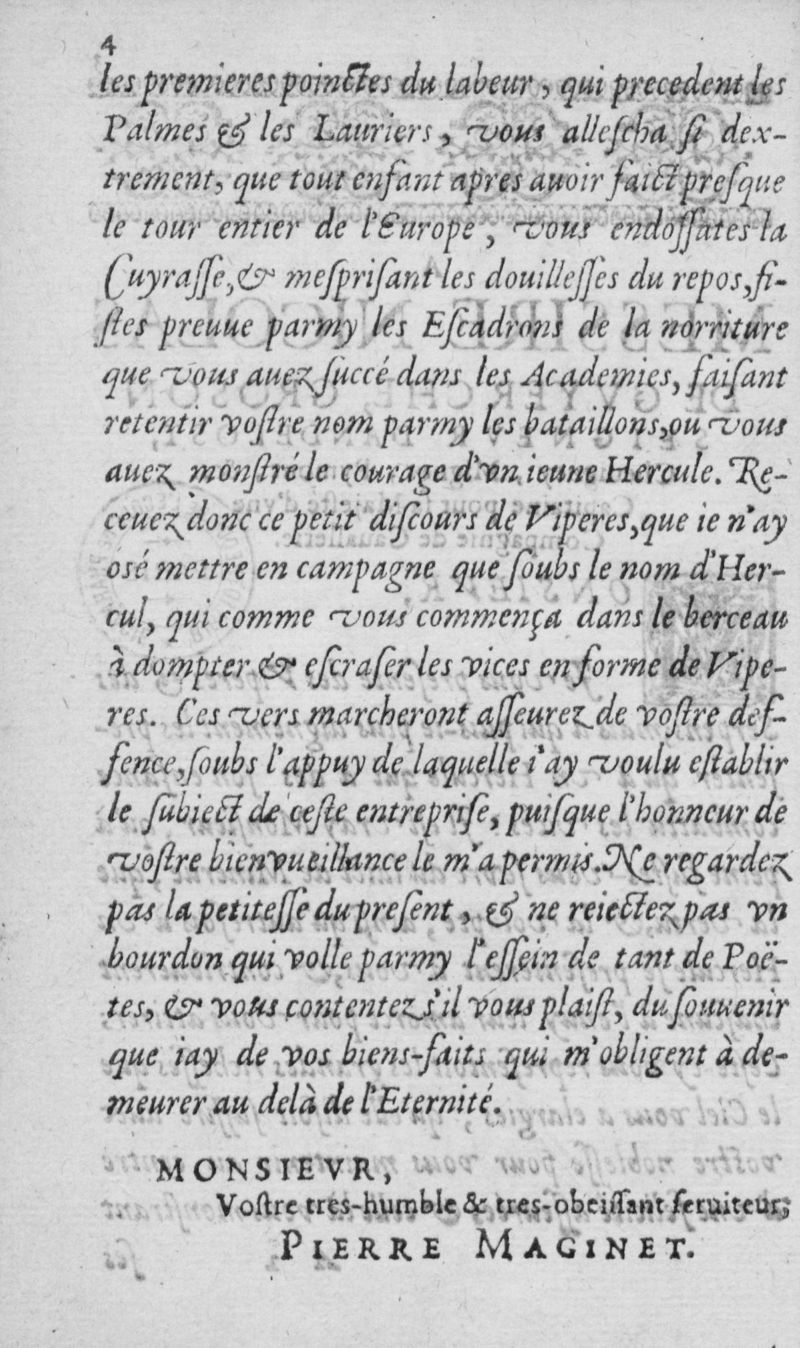 4
les premieres poinctes du labeur, qui precedent les
Palmes & les Lauriers, vous allescha si dex-
trement, que tout enfant apres auoir faict presque
le tour entier de l'Europe, vous endossates la
Cuyrasse, & mesprisant les douillesses du repos, fi-
stes preuue parmy les Escadrons de la norriture
que vous auez succé dans les Academies, faisant
retentir vostre nom parmy les bataillons, ou vous
auez monstré le courage d'vn ieune Hercule. Re-
ceuez donc ce petit discours de Viperes, que ie n'ay
osé mettre en campagne que soubs le nom d'Her-
cul, qui comme vous commença dans le berceau
à dompter & escraser les vices en forme de Vipe-
res. Ces vers marcheront asseurez de vostre def-
fence, soubs l'appuy de laquelle i'ay voulu establir
le subiect de ceste entreprise, puisque l'honneur de
vostre bienvueillance le m'a permis. Ne regardez
pas la petitesse du present, & ne reiectez pas vn
bourdon qui volle parmy l'essein de tant de Poë-
tes, & vous contentez s'il vous plaist, du souuenir
que iay de vos biens-faits qui m'obligent à de-
meurer au delà de l'Eternité.
MONSIEVR,
Vostre tres-humble & tres-obeissant seruiteur,
PIERRE MAGINET.